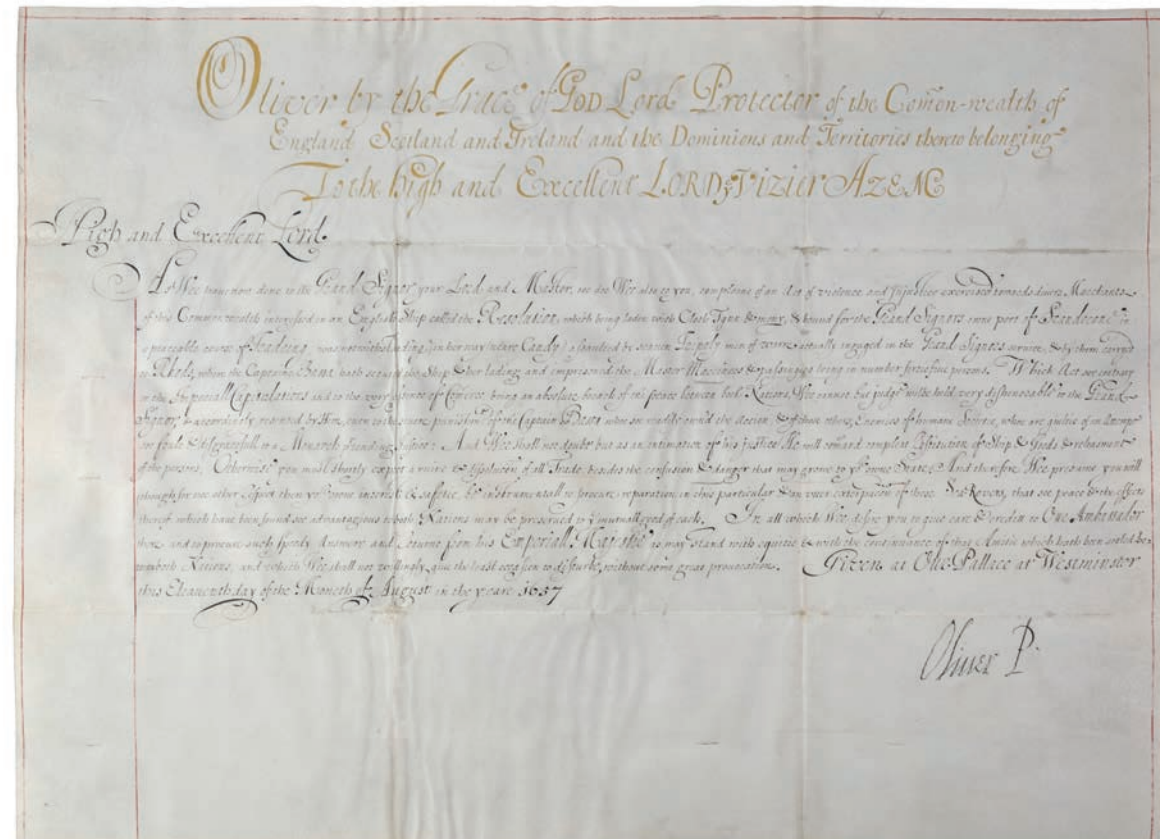 Oliver by the Grace of GOD Lord Protector of the Com̃on-wealth of
England Scotland and Ireland and the Dominions and Territories thereto belonging
To the high and Excellent LORD Vizier AZEM
High and Excellent Lord
As Wee have now done to the Grand Signor your Lord and Master, soe doe Wee also to you, complaine of an Act of violence and Injustice exercised towards divers Merchants
of this Common-wealth interessed in an English Ship called the Resolution, which being laden with Cloth Tynn & mony, & bound for the Grand Signors owne port of Scanderone in
a peaceable course of Tradeing, was notwithstanding in her way neare Candy assaulted by seaven Tripoly men of warre actually engaged in the Grand Signors service, & by them carryed
to Rhods, where the Captaine Bassa hath secured the Ship & her lading and imprisoned the Master Marriners & passengers being in number persons. Which Act soe contrary
to the Imperiall Capitulations and to the very essence of Comerce being an absolute breach of the peace between both Nations, Wee cannot but judge will be held very dishonorable to the Grand
Signor, & accordingly resented by Him, even to the severe punishment of the Captain Bassa who soe readily own'd the action, & of those others, Enemies of humane Societie, who are guilty of an attempt
soe foule & disgracefull to a Monarch in freindship: And Wee shall not doubt but as an intimation of his justice He will comand compleat Restitution of Ship & Goods & enlargement
of the persons, Otherwise you must shortly expect a ruine & dissolution of all Trade, besides the confusion & danger that may growe to yor owne State; And therefore Wee presume you will
though for noe other respect then yor owne interest & safetie, be instrumentall to procure reparation in this particular & an utter extirpacon of those Sea-Rovers, that soe peace & the effects
thereof which have been found soe advantagious to both Nations may be preserved to ye mutuall good of each. In all which Wee desire you to give care & credit to Our Ambassador
there and to procure such speedy Answere and Returne from his Emperiall Majestie as may stand with equitie & with the continuance of that Amitie which hath been setled be-
tween both Nations, and which Wee shall not willingly give the least occasion to disturbe, without some great provocation. Given at Our Pallace at Westminster
this Eleaventh day of the Moneth of August in the yeare 1657
Oliver P.